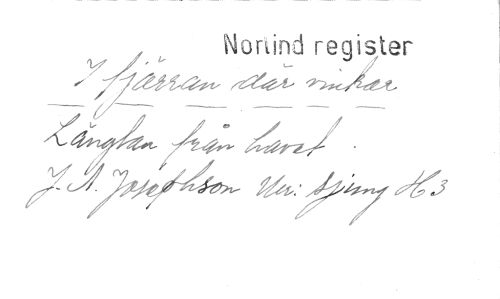 Norlind register
I fjärran där vinkar
Längtan från havet.
J. A. Josephson Ur: Sjung H3